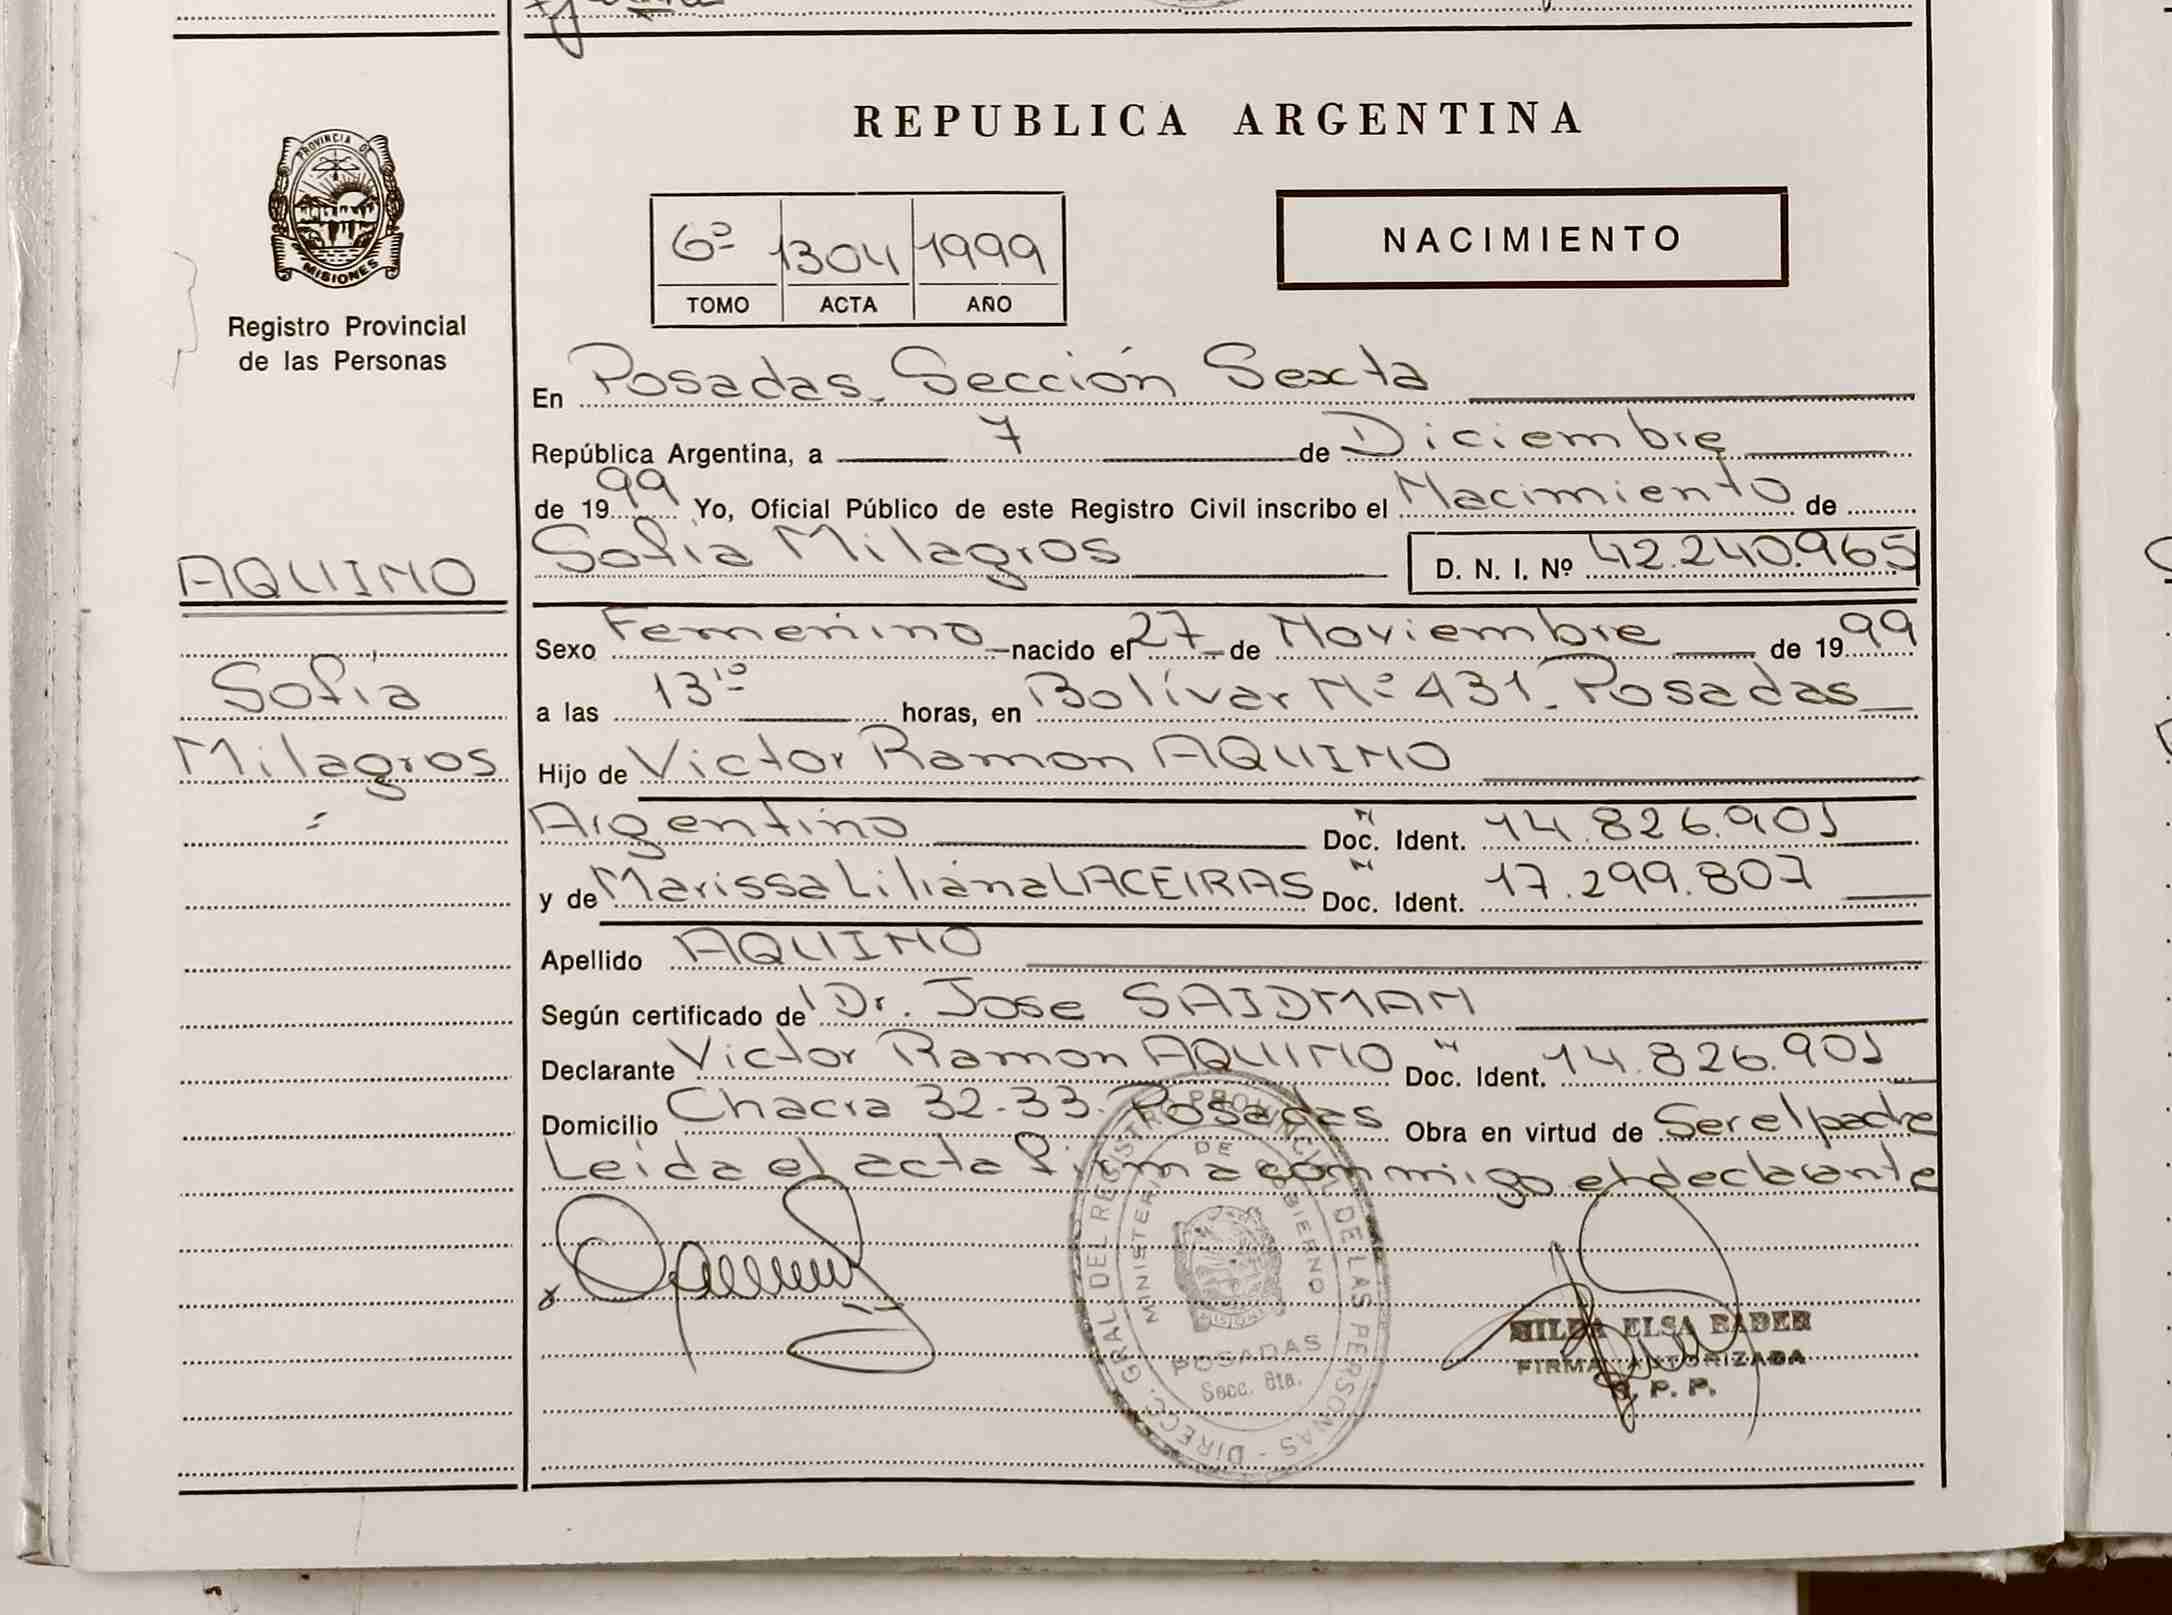 REPUBLICA ARGENTINA
PROVINCIA DE
MISIONES
Registro Provincial
de las Personas
6º 1304 1999
TOMO ACTA AÑO
NACIMIENTO
En Posadas. Sección Sexta
República Argentina, a 7 de Diciembre
de 1999 Yo, Oficial Público de este Registro Civil inscribo el Nacimiento de
Sofia Milagros D. N. I. Nº 42.240.965
AQUINO
Sofia
Milagros
Sexo Femenino nacido el 27 de Noviembre de 1999
a las 13¹⁰ horas, en Bolívar Nº 431. Posadas
Hijo de Victor Ramon AQUINO
Argentino Doc. Ident. 14.826.901
y de Marissa Liliana LACEIRAS Doc. Ident. 17.299.807
Apellido AQUINO
Según certificado de Dr. Jose SAIDMAN
Declarante Victor Ramon AQUINO Doc. Ident. 14.826.901
Domicilio Chacra 32-33. Posadas Obra en virtud de Ser el padre
Leida el acta firma conmigo el declarante
DIRECC. GRAL DEL REGISTRO PROVINCIAL DE LAS PERSONAS
MINISTERIO DE GOBIERNO
POSADAS
Secc. 6ta.
HILDA ELSA BADER
FIRMA AUTORIZADA
R. P. P.